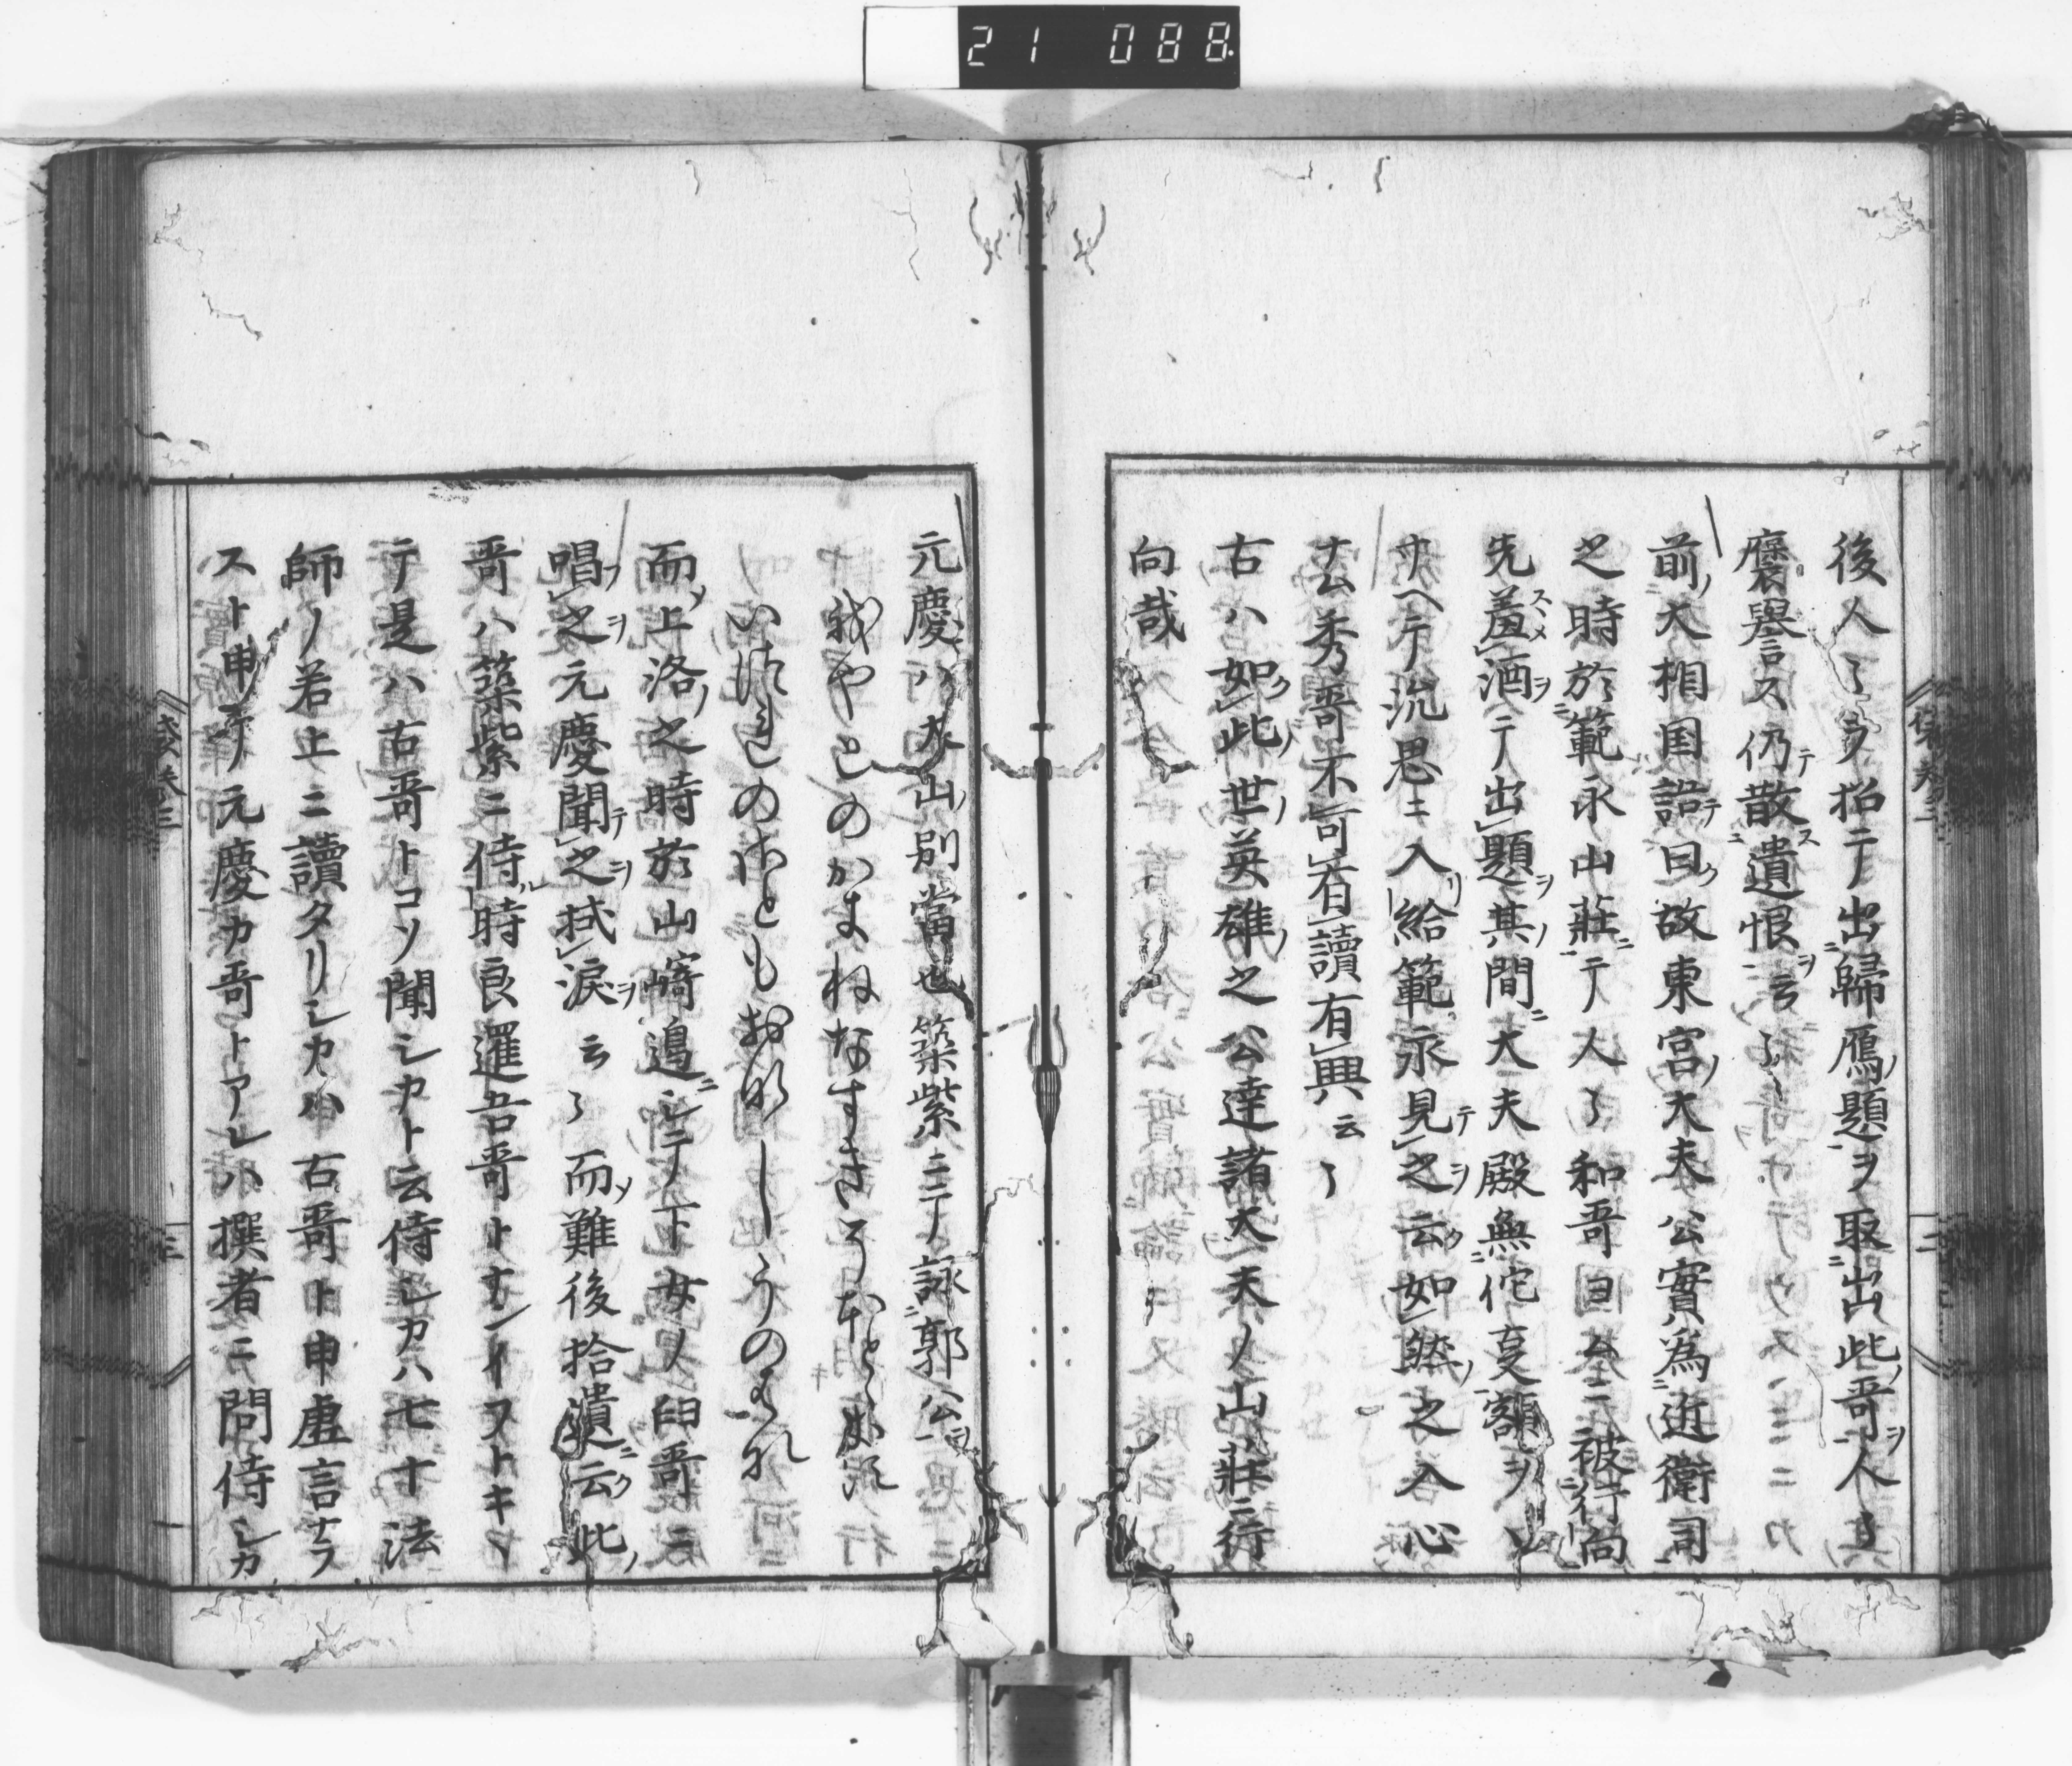 21 088
後人〻ヲ招テ出歸鴈題ヲ取出此哥人〻
褒譽ス仍散遺恨云〻
前大相国語曰故東宮大夫公實為近衛司
之時於範永山莊テ人〻和哥ヨムニ被行向
先羞酒テ出題其間大夫殿無佗事額ヲ
サヘテ沈思ニ入給範永見之云如然之入心
ナ公秀哥不可有讀有興云〻
古ハ如此世英雄之公達諸大夫ノ山莊ニ行
向哉
元慶ハ大山別當也筑紫ニテ詠郭公
我やとのかきねなすきそほとゝきす
いつれのさともおなしうのはな
而上洛之時於山﨑邉シテ下女ノ臼哥ニ
唱之元慶聞之拭涙云〻而難後拾遺云此
哥ハ築紫ニ侍時良暹吾哥トナンイフトキヽ
テ是ハ古哥トコソ聞シカト云侍シカハ七十法
師ノ若上ニ讀タリシカハ古哥ト申虚言ナラ
スト申キ元慶カ哥トアレハ撰者ニ問侍シカ
袋巻三